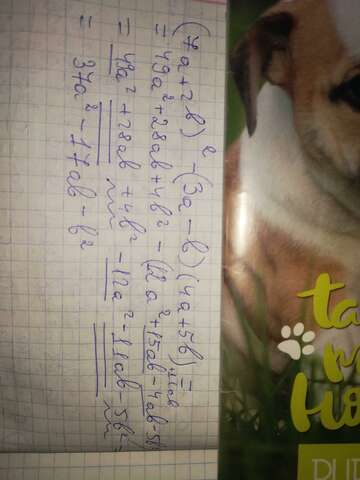 (7a+2b)² - (3a-b)(4a+5b) =
= 49a² + 28ab + 4b² - (12a² + 15ab - 4ab - 5b
11ab
= 49a² + 28ab + 4b² - 12a² - 11ab - 5b² =
= 37a² - 17ab - b²
ta